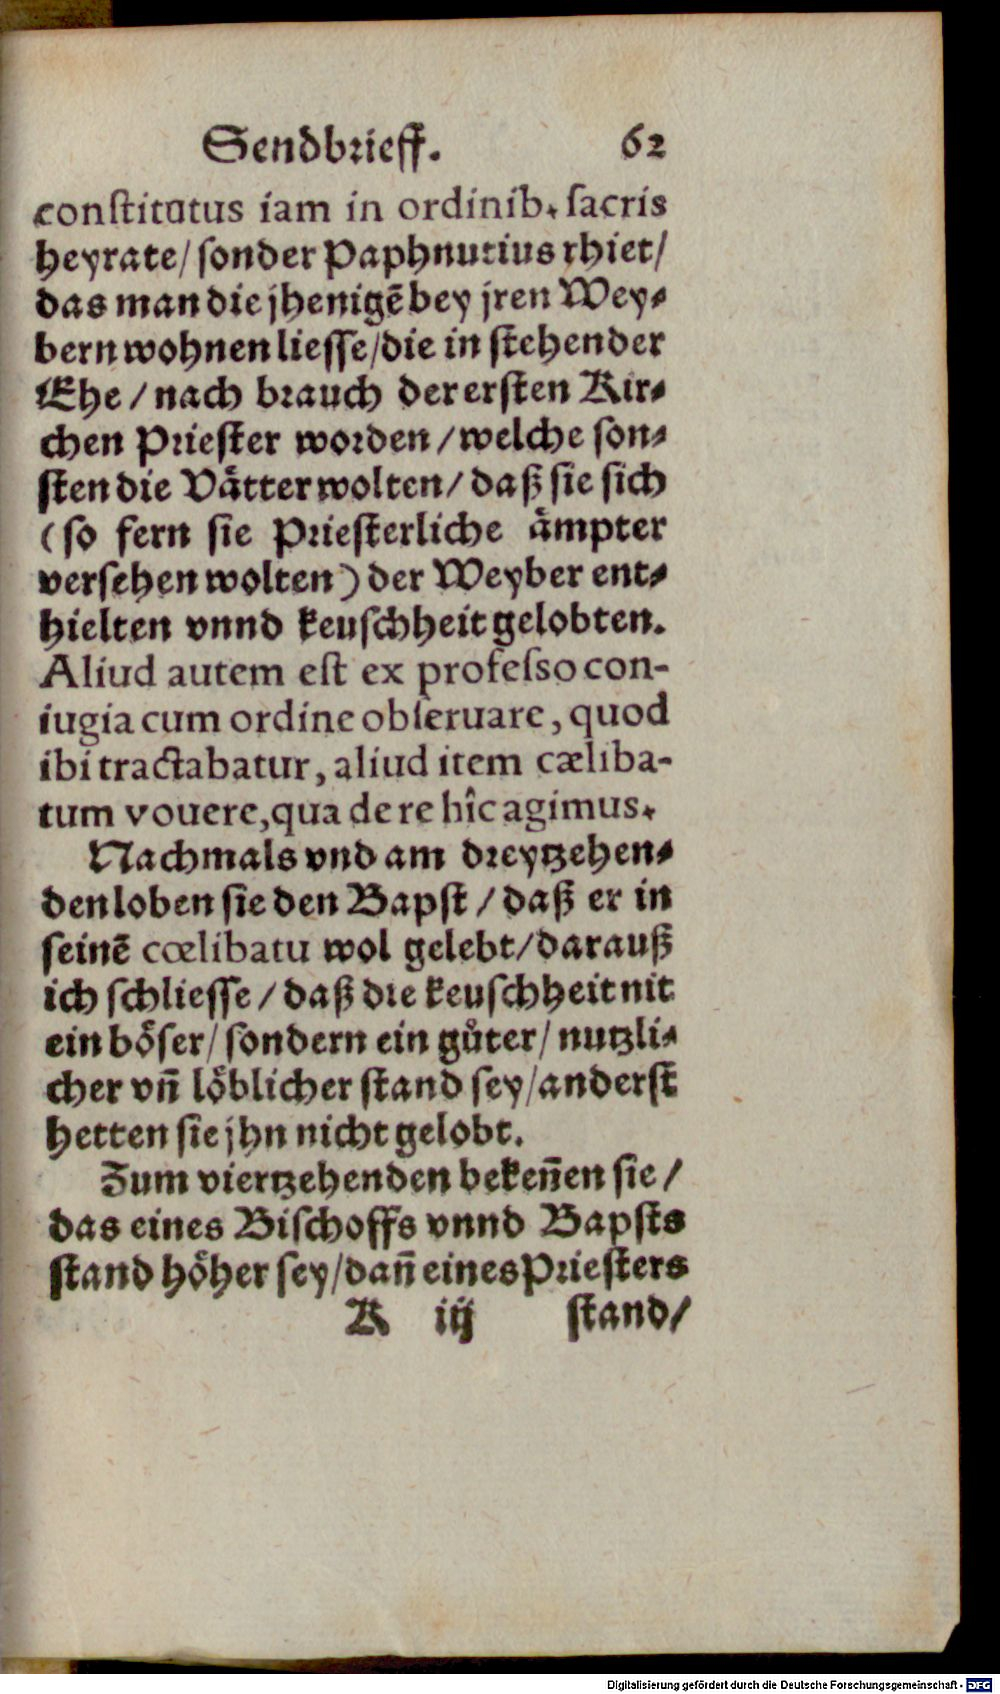 Sendbrieff. 62
constitutus iam in ordinib. sacris
heyrate/ sonder Paphnutius rhiet/
das man die jhenigē bey jren Wey⸗
bern wohnen liesse/die in stehender
Ehe / nach brauch der ersten Kir⸗
chen Priester worden / welche son⸗
sten die Vaͤtter wolten/ daß sie sich
(so fern sie Priesterliche aͤmpter
versehen wolten) der Weyber ent⸗
hielten vnnd keuschheit gelobten.
Aliud autem est ex professo con-
iugia cum ordine obseruare, quod
ibi tractabatur, aliud item cæliba-
tum vouere, qua de re hîc agimus.
Nachmals vnd am dreytzehen⸗
den loben sie den Bapst / daß er in
seinē cœlibatu wol gelebt/darauß
ich schliesse / daß die keuschheit nit
ein boͤser/ sondern ein guͤter/ nutzli⸗
cher vñ loͤblicher stand sey/anderst
hetten sie jhn nicht gelobt.
Zum viertzehenden bekeñen sie /
das eines Bischoffs vnnd Bapsts
stand hoͤher sey/dañ eines Priesters
K iij stand/
Digitalisierung gefördert durch die Deutsche Forschungsgemeinschaft - DFG